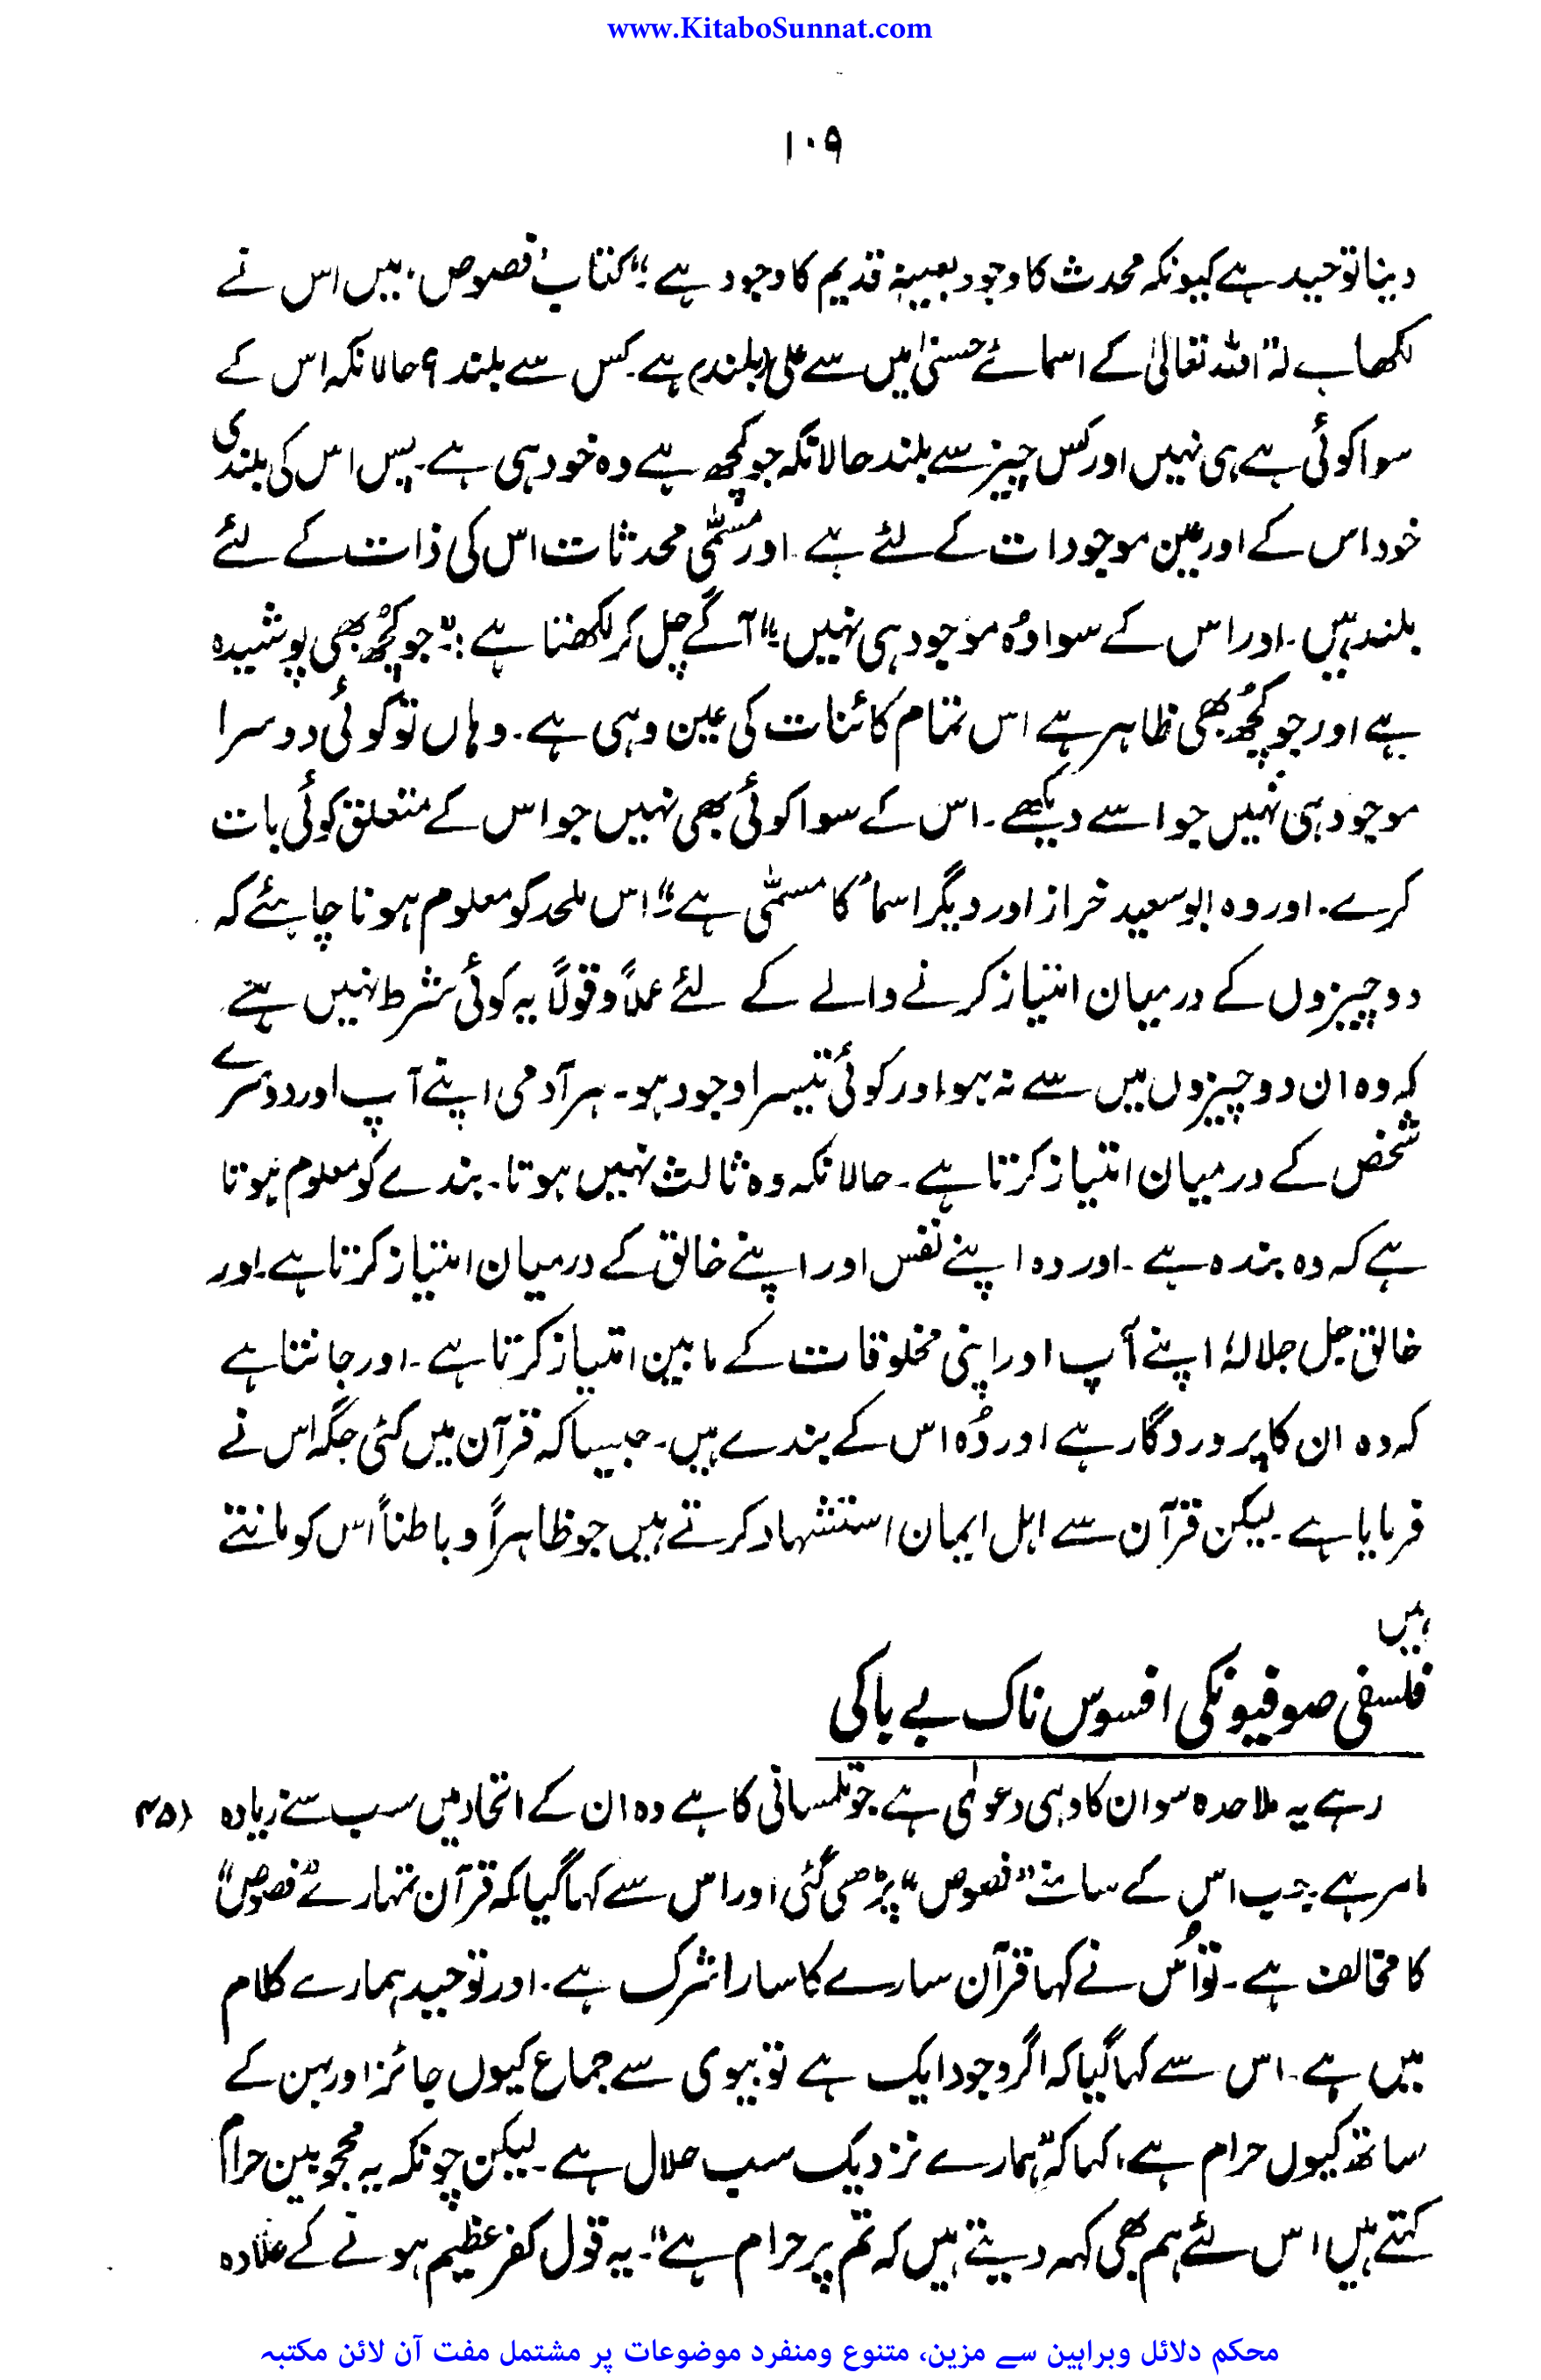 www.KitaboSunnat.com
۱۰۹
دینا توحید ہے کیونکہ محدث کا وجود بعینہٖ قدیم کا وجود ہے"۔ کتاب فصوص، میں اس نے
لکھا ہے کہ "اللہ تعالیٰ کے اسمائے حسنیٰ میں سے علی (بلند) ہے۔ کس سے بلند؟ حالانکہ اس کے
سوا کوئی ہے ہی نہیں اور کس چیز سے بلند حالانکہ جو کچھ ہے وہ خود ہی ہے۔ پس اس کی بلندی
خود اس کے اور عین موجودات کے لئے ہے۔ اور مسمّٰی محدثات اس کی ذات کے لئے
بلند ہیں۔ اور اس کے سوا وُہ موجود ہی نہیں"۔ آگے چل کر لکھتا ہے:۔ "جو کچُھ بھی پوشیدہ
ہے اور جو کچُھ بھی ظاہر ہے اس تمام کائنات کی عین وہی ہے۔ وہاں تو کوئی دوسرا
موجود ہی نہیں جو اسے دیکھے۔ اس کے سوا کوئی بھی نہیں جو اس کے متعلق کوئی بات
کرے۔ اور وہ ابو سعید خراز اور دیگر اسماء کا مسمّٰی ہے"۔ اس ملحد کو معلوم ہونا چاہئے کہ
دو چیزوں کے درمیان امتیاز کرنے والے کے لئے عملاً و قولاً یہ کوئی شرط نہیں ہے
کہ وہ ان دو چیزوں میں سے نہ ہو اور کوئی تیسرا وجود ہو۔ ہر آدمی اپنے آپ اور دوسرے
شخص کے درمیان امتیاز کرتا ہے۔ حالانکہ وہ ثالث نہیں ہوتا۔ بندے کو معلوم ہوتا
ہے کہ وہ بندہ ہے۔ اور وہ اپنے نفس اور اپنے خالق کے درمیان امتیاز کرتا ہے۔ اور
خالق جل جلالہٗ اپنے آپ اور اپنی مخلوقات کے مابین امتیاز کرتا ہے۔ اور جانتا ہے
کہ وہ ان کا پروردگار ہے اور وُہ اس کے بندے ہیں۔ جیسا کہ قرآن میں کئی جگہ اس نے
فرمایا ہے۔ لیکن قرآن سے اہل ایمان استشہاد کرتے ہیں جو ظاہراً و باطناً اس کو مانتے
ہیں
فلسفی صوفیونکی افسوس ناک بے باکی
رہے یہ ملاحدہ سو ان کا وہی دعویٰ ہے جو تلمسانی کا ہے وہ ان کے اتحاد میں سب سے زیادہ
ماہر ہے۔ جب اس کے سامنے "فصوص" پڑھی گئی اور اس سے کہا گیا کہ قرآن تمہارے "فصوص"
کا مخالف ہے۔ تو اُس نے کہا قرآن سارے کا سارا شرک ہے۔ اور توحید ہمارے کلام
میں ہے۔ اس سے کہا گیا کہ اگر وجود ایک ہے تو بیوی سے جماع کیوں جائز اور بہن کے
ساتھ کیوں حرام ہے، کہا کہ "ہمارے نزدیک سب حلال ہے۔ لیکن چونکہ یہ محجوبین حرام
کہتے ہیں اس لئے ہم بھی کہہ دیتے ہیں کہ تم پر حرام ہے"۔ یہ قول کفر عظیم ہونے کے علاوہ
محکم دلائل وبراہین سے مزین، متنوع ومنفرد موضوعات پر مشتمل مفت آن لائن مکتبہ